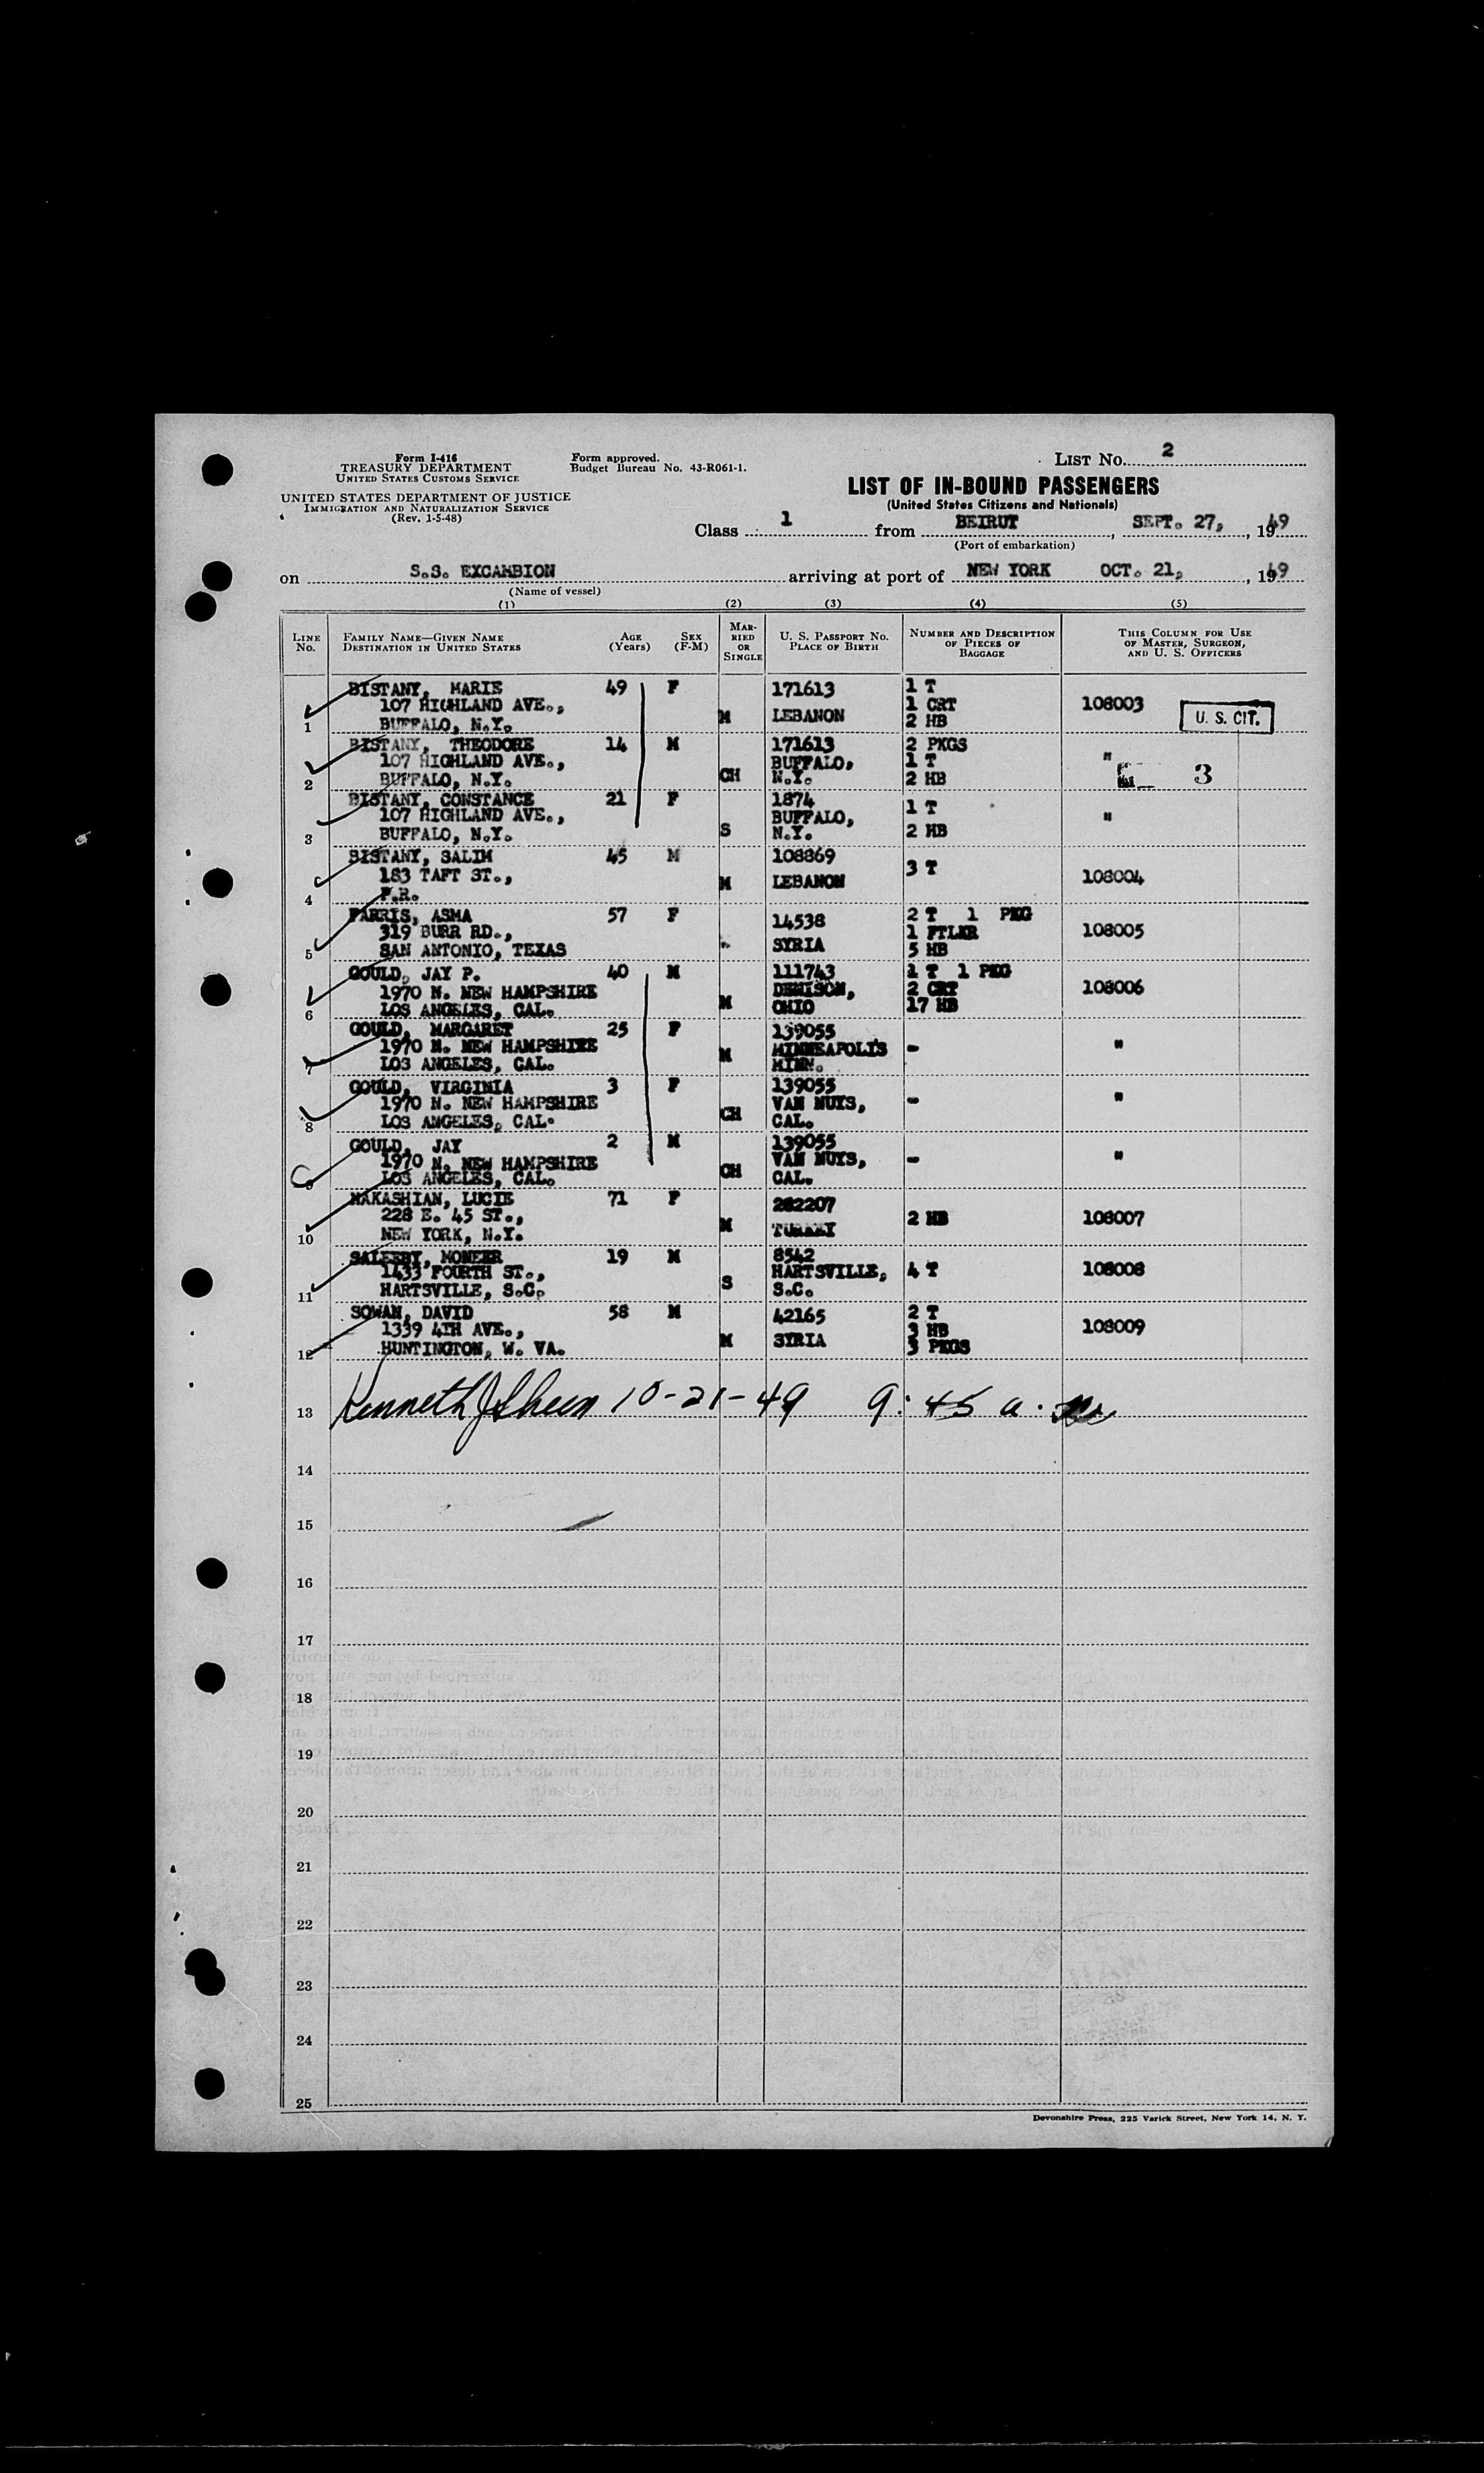 Form I-416
TREASURY DEPARTMENT
UNITED STATES CUSTOMS SERVICE
UNITED STATES DEPARTMENT OF JUSTICE
IMMIGRATION AND NATURALIZATION SERVICE
(Rev. 1-5-48)
Form approved.
Budget Bureau No. 43-R061-1.
LIST No. 2
LIST OF IN-BOUND PASSENGERS
(United States Citizens and Nationals)
Class 1 from BEIRUT, SEPT. 27, 1949
(Port of embarkation)
on S.S. EXCAMBION arriving at port of NEW YORK OCT. 21, 1949
(Name of vessel)
(1) (2) (3) (4) (5)
LINE No. FAMILY NAME—GIVEN NAME DESTINATION IN UNITED STATES AGE (Years) SEX (F-M) MARRIED OR SINGLE U. S. PASSPORT No. PLACE OF BIRTH NUMBER AND DESCRIPTION OF PIECES OF BAGGAGE THIS COLUMN FOR USE OF MASTER, SURGEON, AND U. S. OFFICERS
BISTANY, MARIE 49 F 171613 1 T
107 HIGHLAND AVE., 1 CRT 108003
1 BUFFALO, N.Y. M LEBANON 2 HB U. S. CIT.
BISTANY, THEODORE 14 M 171613 2 PKGS
107 HIGHLAND AVE., BUFFALO, 1 T "
2 BUFFALO, N.Y. CH N.Y. 2 HB 3
BISTANY, CONSTANCE 21 F 1874 1 T
107 HIGHLAND AVE., BUFFALO, "
3 BUFFALO, N.Y. S N.Y. 2 HB
BISTANY, SALIM 45 M 108869
183 TAFT ST., 3 T
4 P.R. M LEBANON 108004
FARRIS, ASMA 57 F 14538 2 T 1 PKG
319 BURR RD., 1 FTLKR 108005
5 SAN ANTONIO, TEXAS SYRIA 5 HB
GOULD, JAY P. 40 M 111743 1 T 1 PKG
1970 N. NEW HAMPSHIRE DENISON, 2 CRT 108006
6 LOS ANGELES, CAL. M OHIO 17 HB
GOULD, MARGARET 25 F 139055
1970 N. NEW HAMPSHIRE M MINNEAPOLIS - "
7 LOS ANGELES, CAL. MINN.
GOULD, VIRGINIA 3 F 139055
1970 N. NEW HAMPSHIRE VAN NUYS, - "
8 LOS ANGELES, CAL. CH CAL.
GOULD, JAY 2 M 139055
1970 N. NEW HAMPSHIRE VAN NUYS, - "
9 LOS ANGELES, CAL. CH CAL.
NAKASHIAN, LUCIE 71 F 282207
228 E. 45 ST., 2 HB 108007
10 NEW YORK, N.Y. M TURKEY
SALEEBY, MONEER 19 M 8542
1433 FOURTH ST., HARTSVILLE, 4 T 108008
11 HARTSVILLE, S.C. S S.C.
SOWAN, DAVID 58 M 42165 2 T
1339 4TH AVE., 3 HB 108009
12 HUNTINGTON, W. VA. M SYRIA 3 PKGS
13 Kenneth J Sheen 10-21-49 9:45 a.m.
14
15
16
17
18
19
20
21
22
23
24
25
Devonshire Press, 225 Varick Street, New York 14, N. Y.